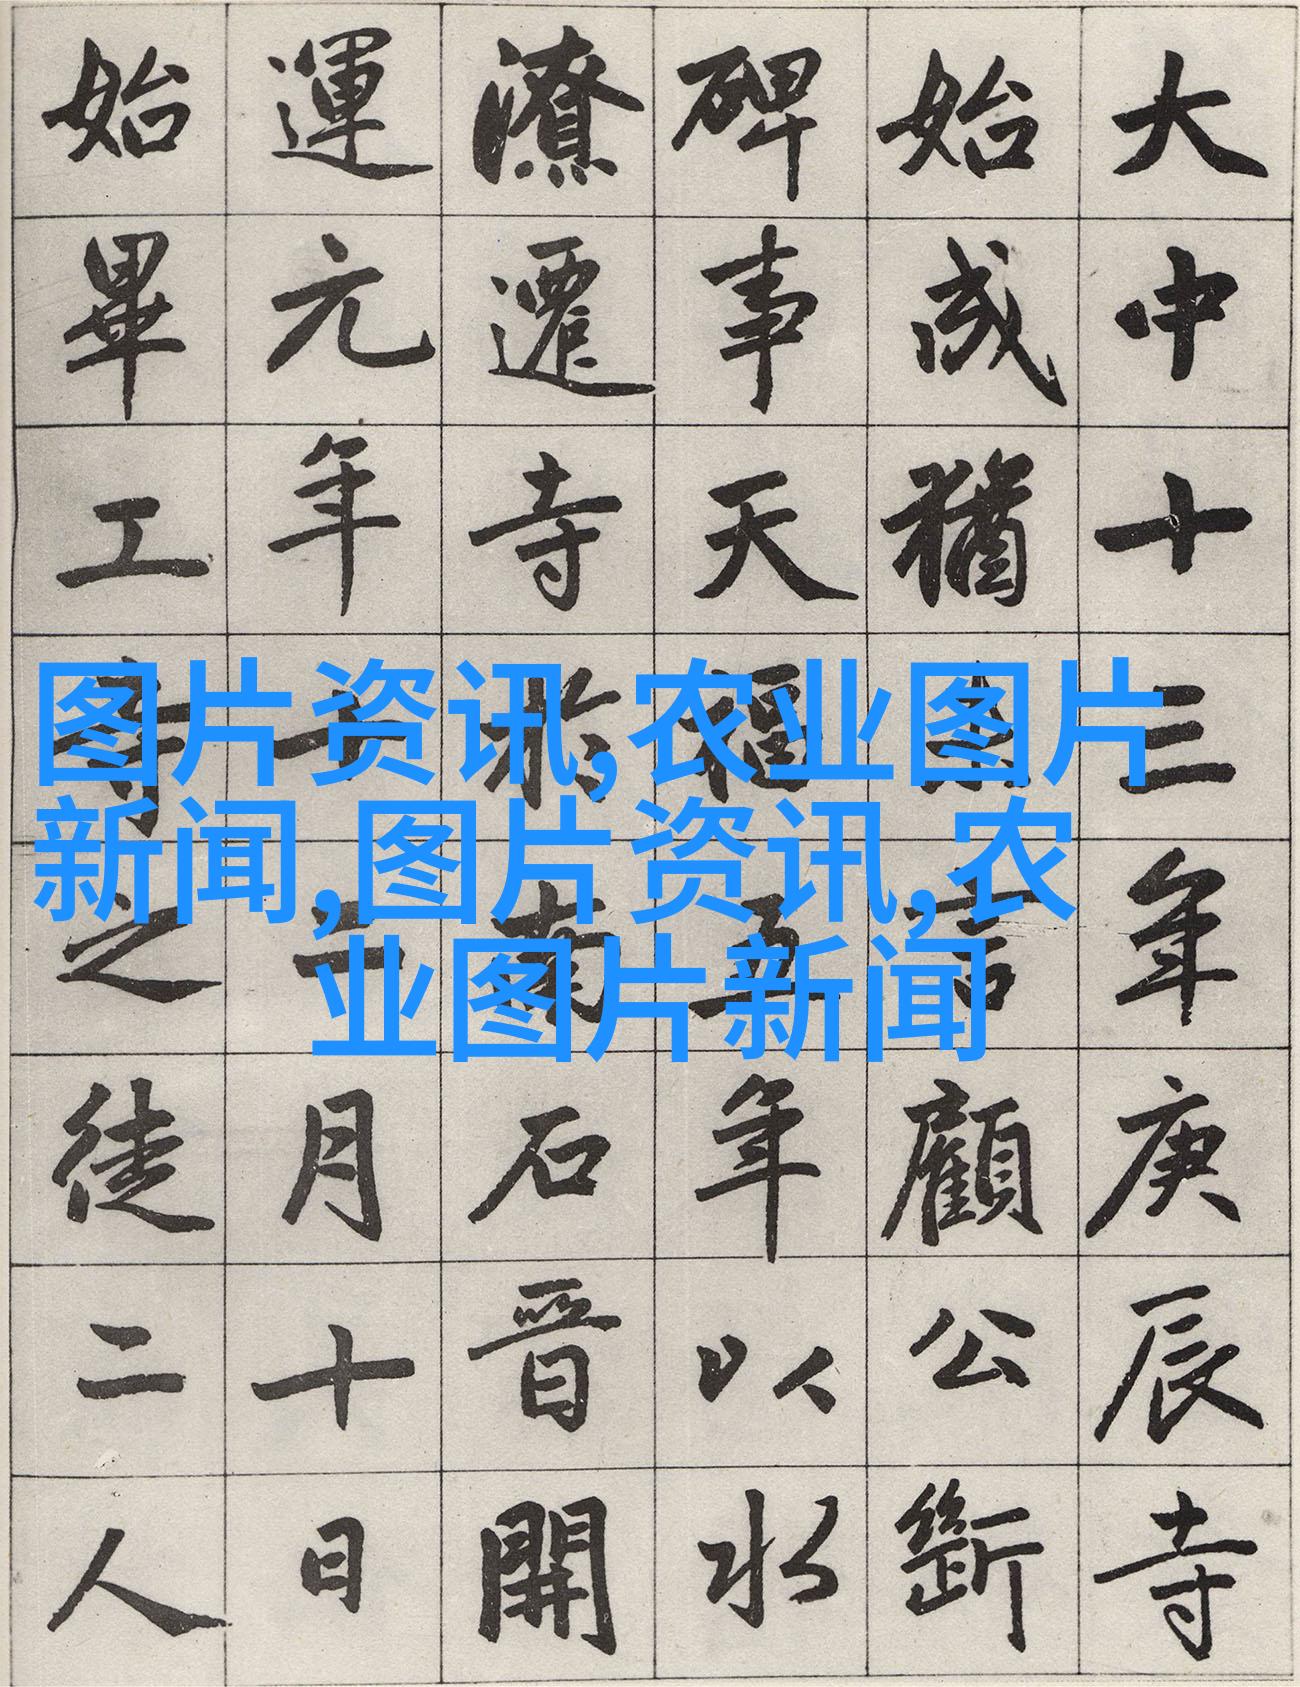 大中十三年庚辰寺
始成猶言顧公斷
碑事天福五年以水
潦遷寺於南石晉開
運元年十二月十日
始畢工寺之徒二人
图片资讯,农业图片
新闻,图片资讯,农
业图片新闻